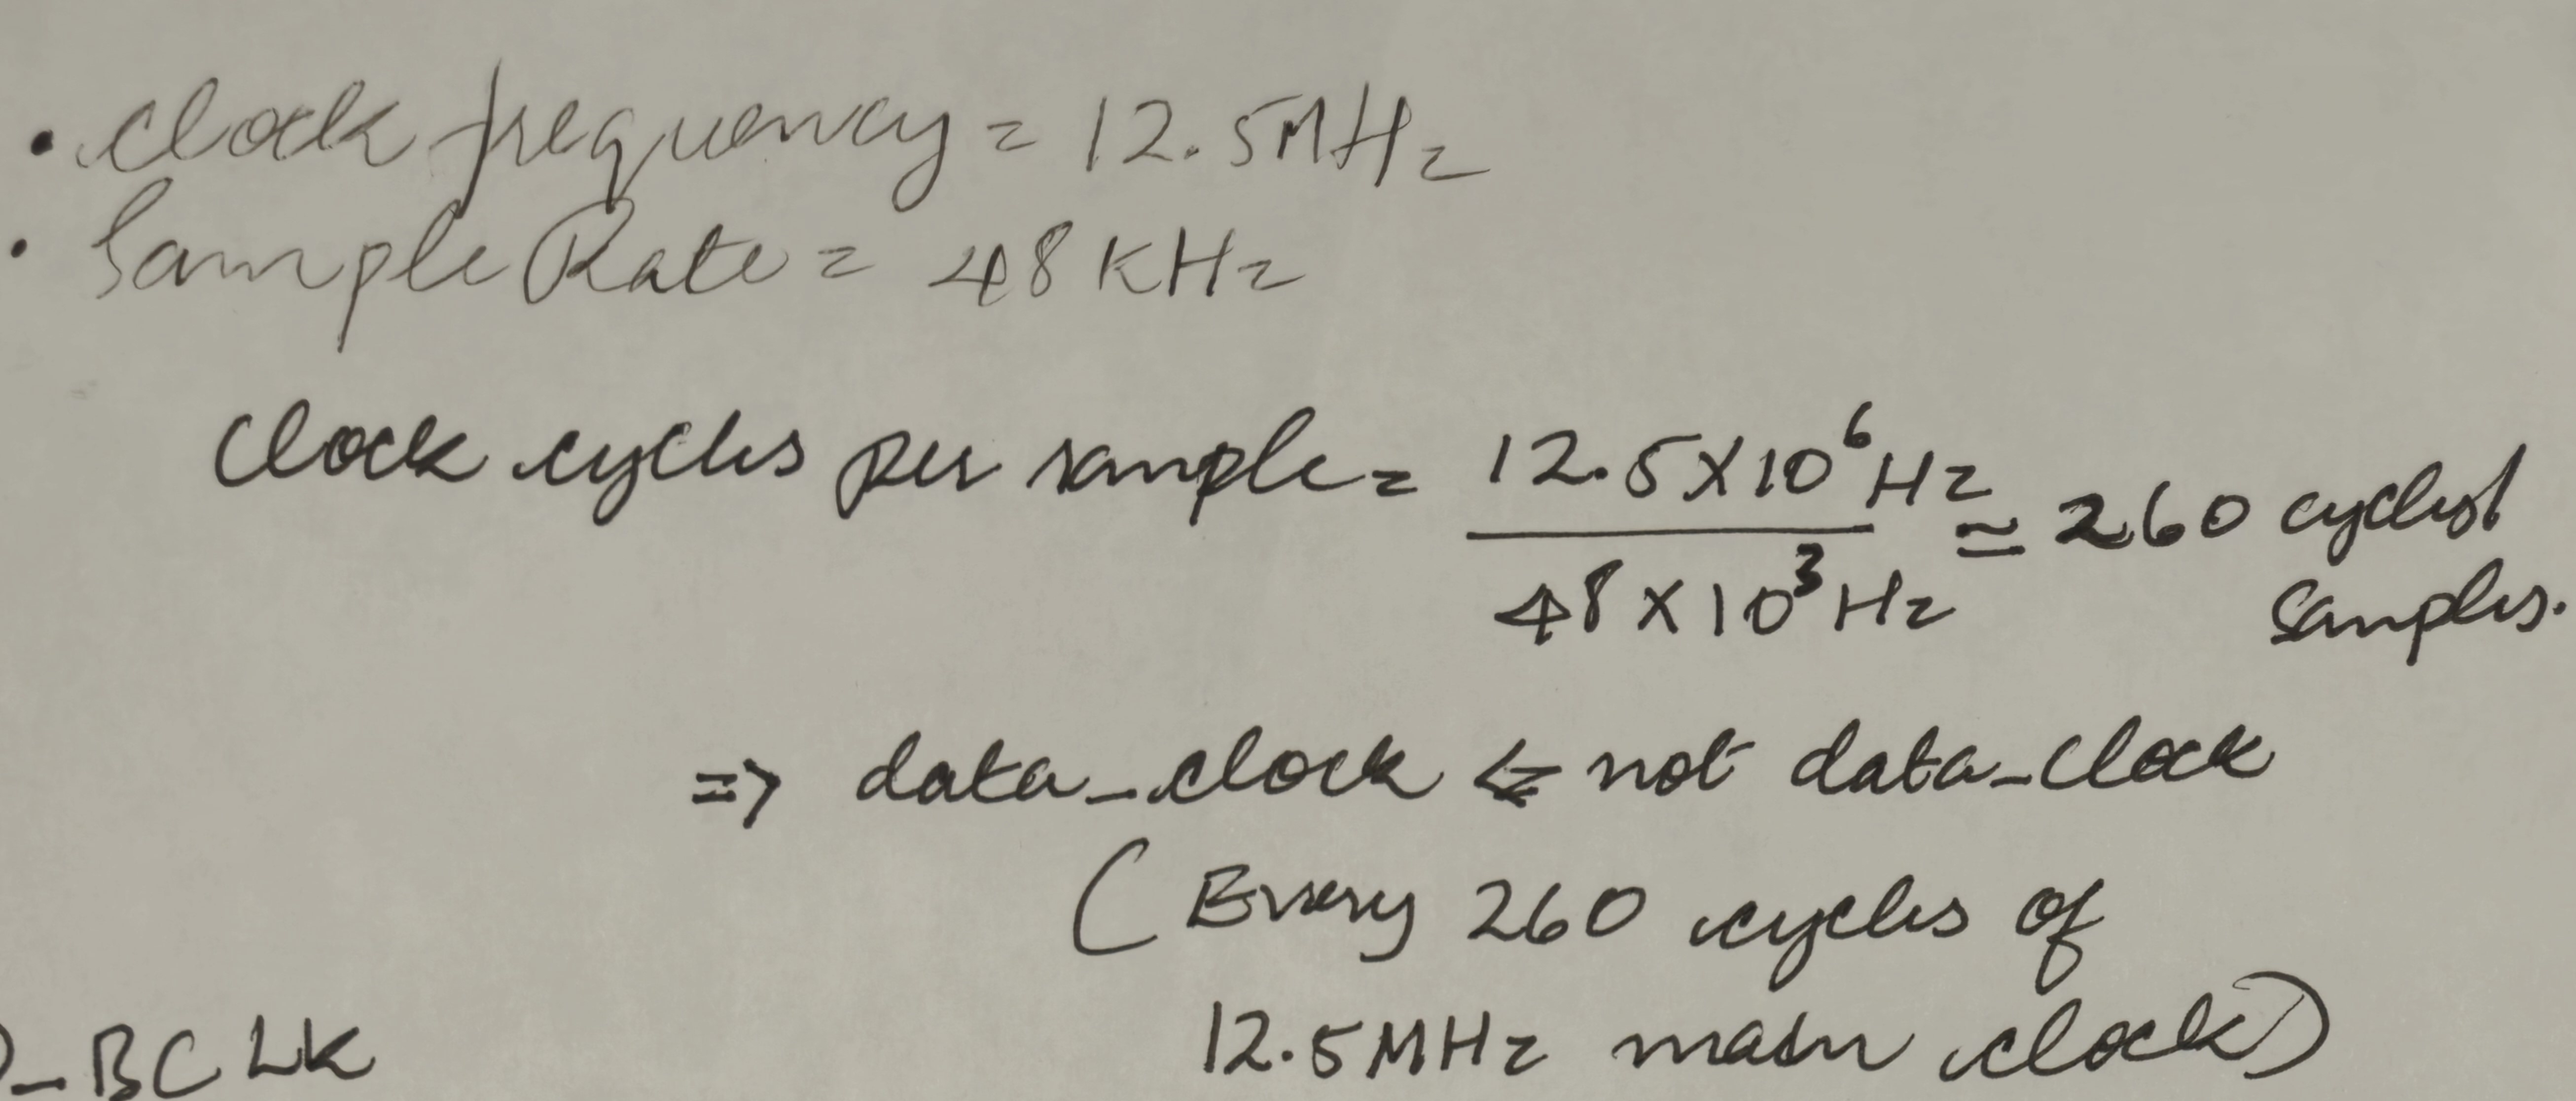 • Clock frequency = 12.5MHz
• Sample Rate = 48 KHz
Clock cycles per sample = 12.5×10⁶ Hz / 48×10³ Hz ≃ 260 cycles/
samples.
=> data_clock <= not data_clock
( Every 260 cycles of
12.5MHz main clock)
_BCLK